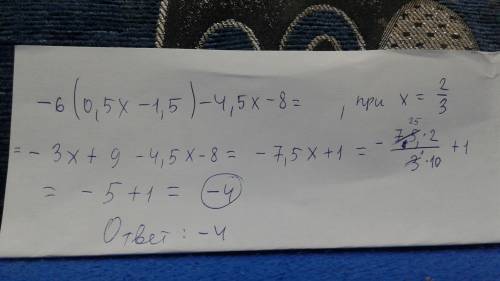 -6(0,5x -1,5)-4,5x-8= , при x = 2/3
= - 3x + 9 - 4,5x - 8 = - 7,5x + 1 = - 7,5 · 2 / 3 · 10 + 1
25 1
= - 5 + 1 = -4
Ответ: -4